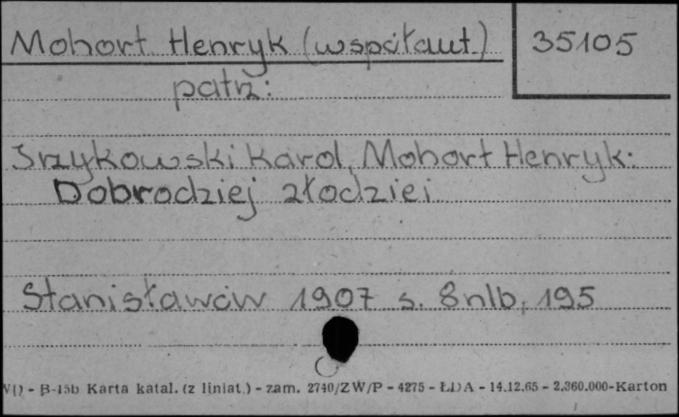 Mohort Henryk (współaut.) 35105
patrz:
Irzykowski Karol, Mohort Henryk:
Dobrodziej złodziei
Stanisławów 1907 s. 8nlb, 195
WD - B-15b Karta katal. (z liniat.) - zam. 2740/ZW/P - 4275 - ŁDA - 14.12.65 - 2.360.000-Karton